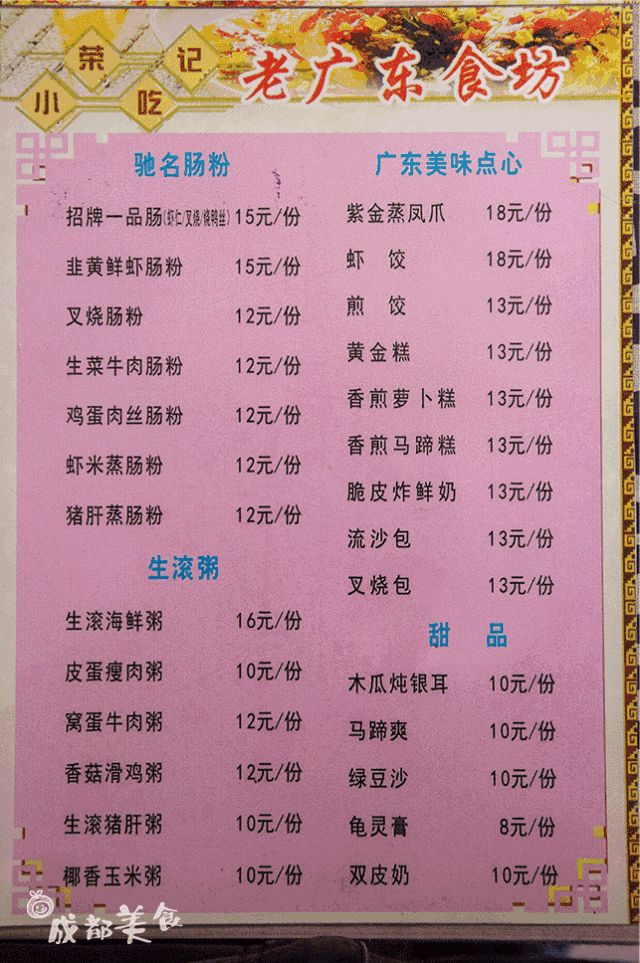 荣记
小吃
老广东食坊
驰名肠粉
招牌一品肠(虾仁/叉烧/烧鸭丝) 15元/份
韭黄鲜虾肠粉 15元/份
叉烧肠粉 12元/份
生菜牛肉肠粉 12元/份
鸡蛋肉丝肠粉 12元/份
虾米蒸肠粉 12元/份
猪肝蒸肠粉 12元/份
生滚粥
生滚海鲜粥 16元/份
皮蛋瘦肉粥 10元/份
窝蛋牛肉粥 12元/份
香菇滑鸡粥 12元/份
生滚猪肝粥 10元/份
椰香玉米粥 10元/份
广东美味点心
紫金蒸凤爪 18元/份
虾 饺 18元/份
煎 饺 13元/份
黄金糕 13元/份
香煎萝卜糕 13元/份
香煎马蹄糕 13元/份
脆皮炸鲜奶 13元/份
流沙包 13元/份
叉烧包 13元/份
甜 品
木瓜炖银耳 10元/份
马蹄爽 10元/份
绿豆沙 10元/份
龟灵膏 8元/份
双皮奶 10元/份
成都美食